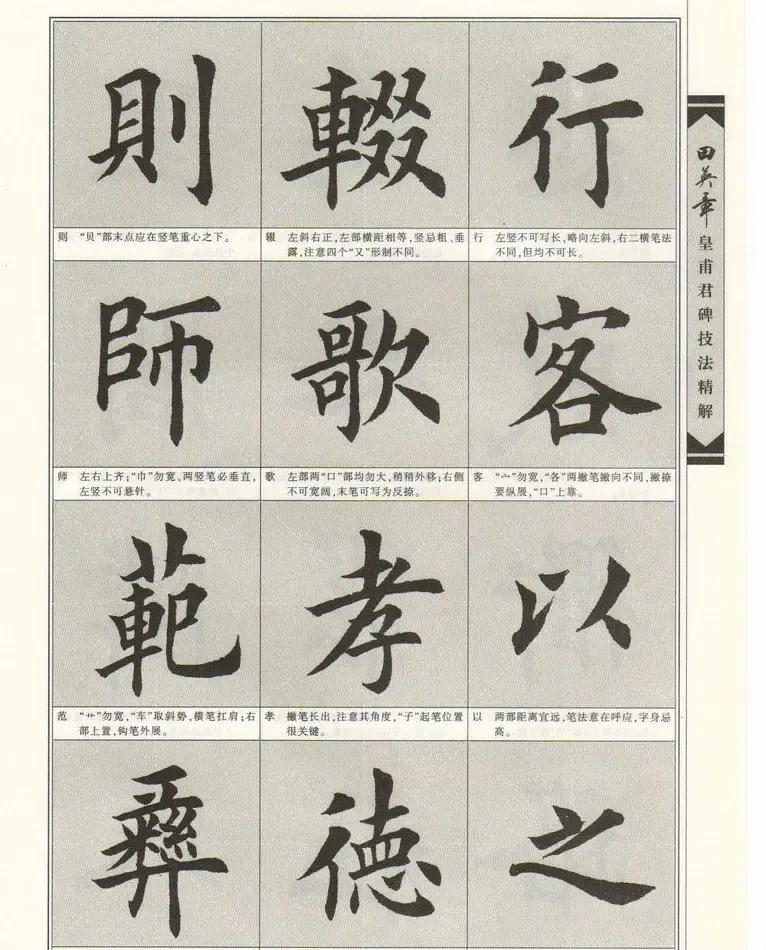 則
輟
行
则 “贝”部末点应在竖笔重心之下。
辍 左斜右正，左部横距相等，竖忌粗、垂
露，注意四个“又”形制不同。
行 左竖不可写长，略向左斜，右二横笔法
不同，但均不可长。
師
歌
客
师 左右上齐；“巾”勿宽，两竖笔必垂直，
左竖不可悬针。
歌 左部两“口”部均勿大，稍稍外移；右侧
不可宽阔，末笔可写为反捺。
客 “宀”勿宽，“各”两撇笔撇向不同，撇捺
要纵展，“口”上靠。
範
孝
以
范 “艹”勿宽，“车”取斜势，横笔扛肩；右
部上置，钩笔外展。
孝 撇笔长出，注意其角度，“子”起笔位置
很关键。
以 两部距离宜远，笔法意在呼应，字身忌
高。
彝
德
之
田英章皇甫君碑技法精解